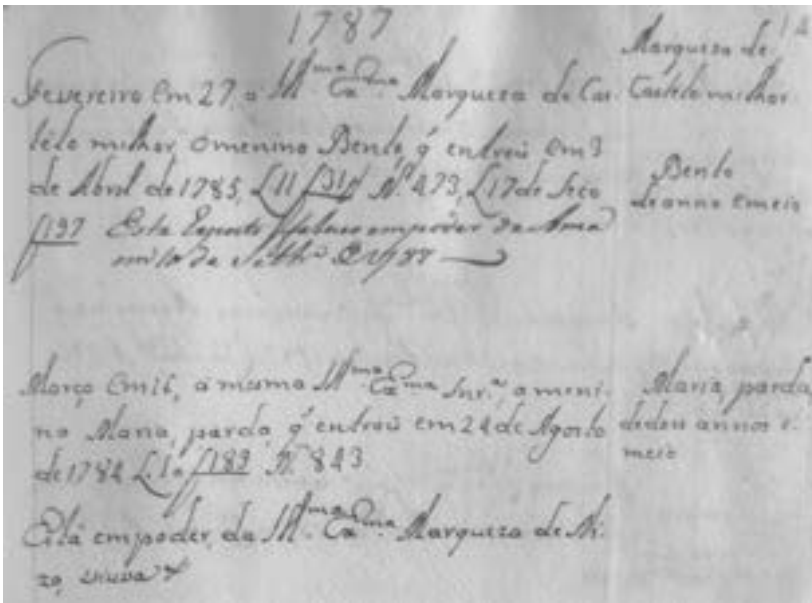 1787
14
Fevereiro Em 27, a Illma Exma Marqueza de Cas-
télo milhor, o menino Bento, q̃ entrou em 3
de Abril de 1785, L11 f31 N.473, L17 de Seco
f197 Este Exposto faleceo em poder da Ama
de 1788
Marqueza de
Castélo milhor
Bento
de anno e meio
Março Em 16, a mesma Illma Exma Snr.ª, a meni-
na Maria, parda, q̃ entrou em 24 de Agosto
de 1784 L10 f189 N.843
Está em poder, da Illma Exma Marqueza de Ni-
za, viuva
Maria, parda,
de dous annos e
meio